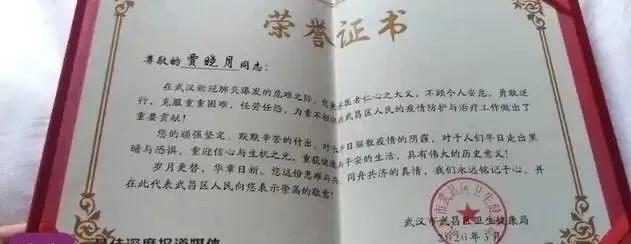 荣誉证书
尊敬的贾晓月同志：
在武汉新冠肺炎爆发的危难之际，您秉承医者仁心之大义，不顾个人安危，勇敢逆
行，克服重重困难，任劳任怨，为素不相识的武昌区人民的疫情防护与治疗工作做出了
重要贡献！
您的顽强坚定、默默辛苦的付出，对早日驱散疫情的阴霾，对于人们早日走出黑
暗与恐惧，重迎信心与生机之光，重获健康与平安的生活，具有伟大的历史意义！
岁月更替，华章日新。您这份患难与共、同舟共济的真情，我们永远铭记于心，并
在此代表武昌区人民向您表示崇高的敬意！
武汉市武昌区卫生健康局
2020年3月
最佳深度报道媒体